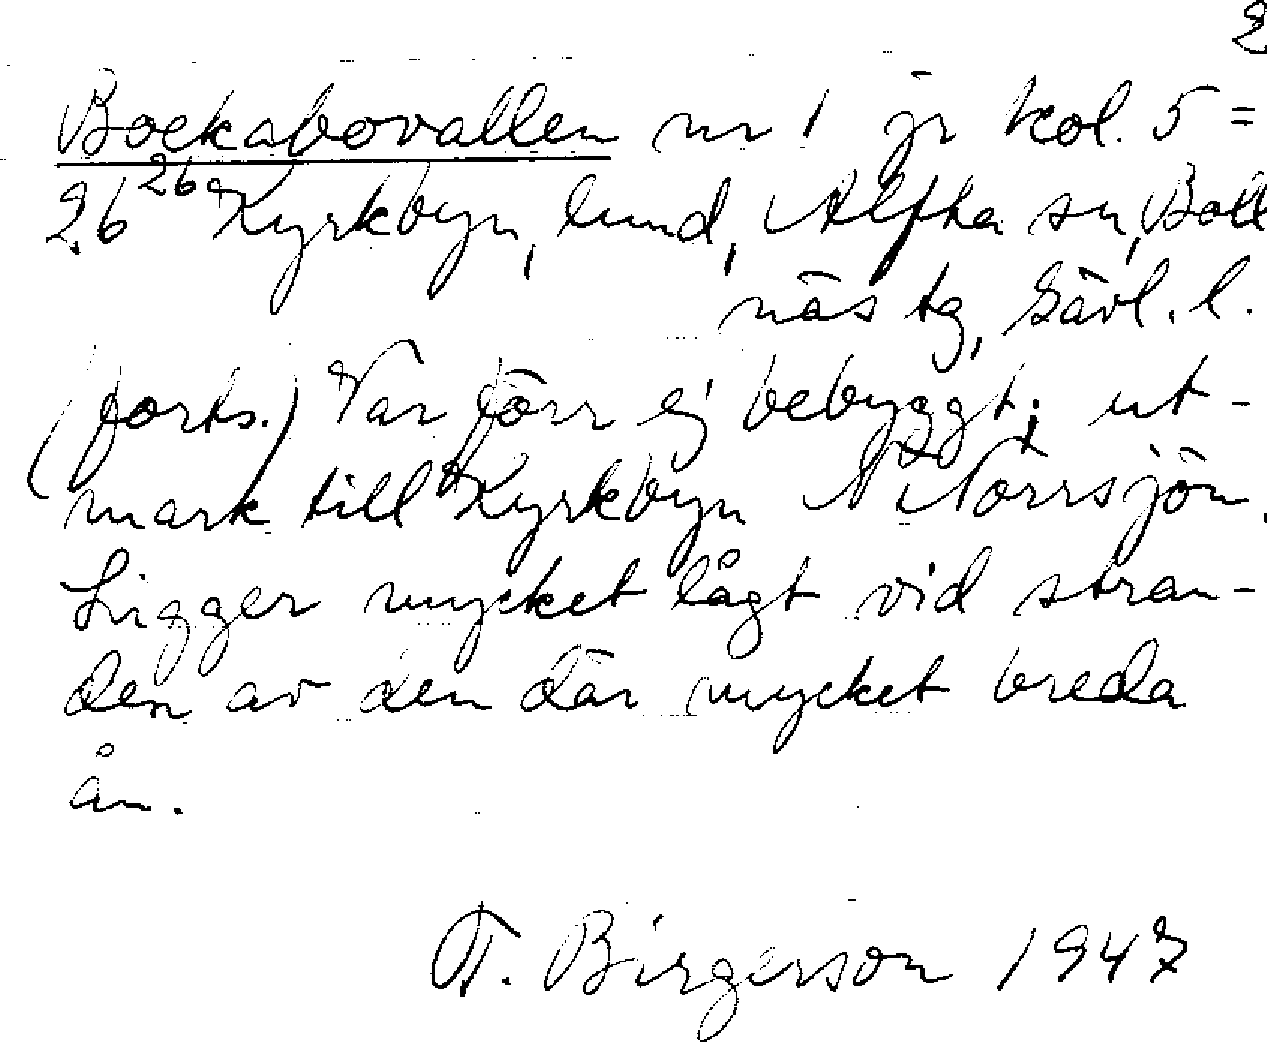 2
Bockabovallen nr 1 jr kol. 5 =
26 26 Kyrkbyn, lund, Alfta sn, Boll
näs tg, Gävl. l.
(forts.) Var förr ej bebyggt; ut-
mark till Kyrkbyn N Norrsjön.
Ligger mycket lågt vid stran-
den av den där mycket breda
ån.
T. Birgerson 1947